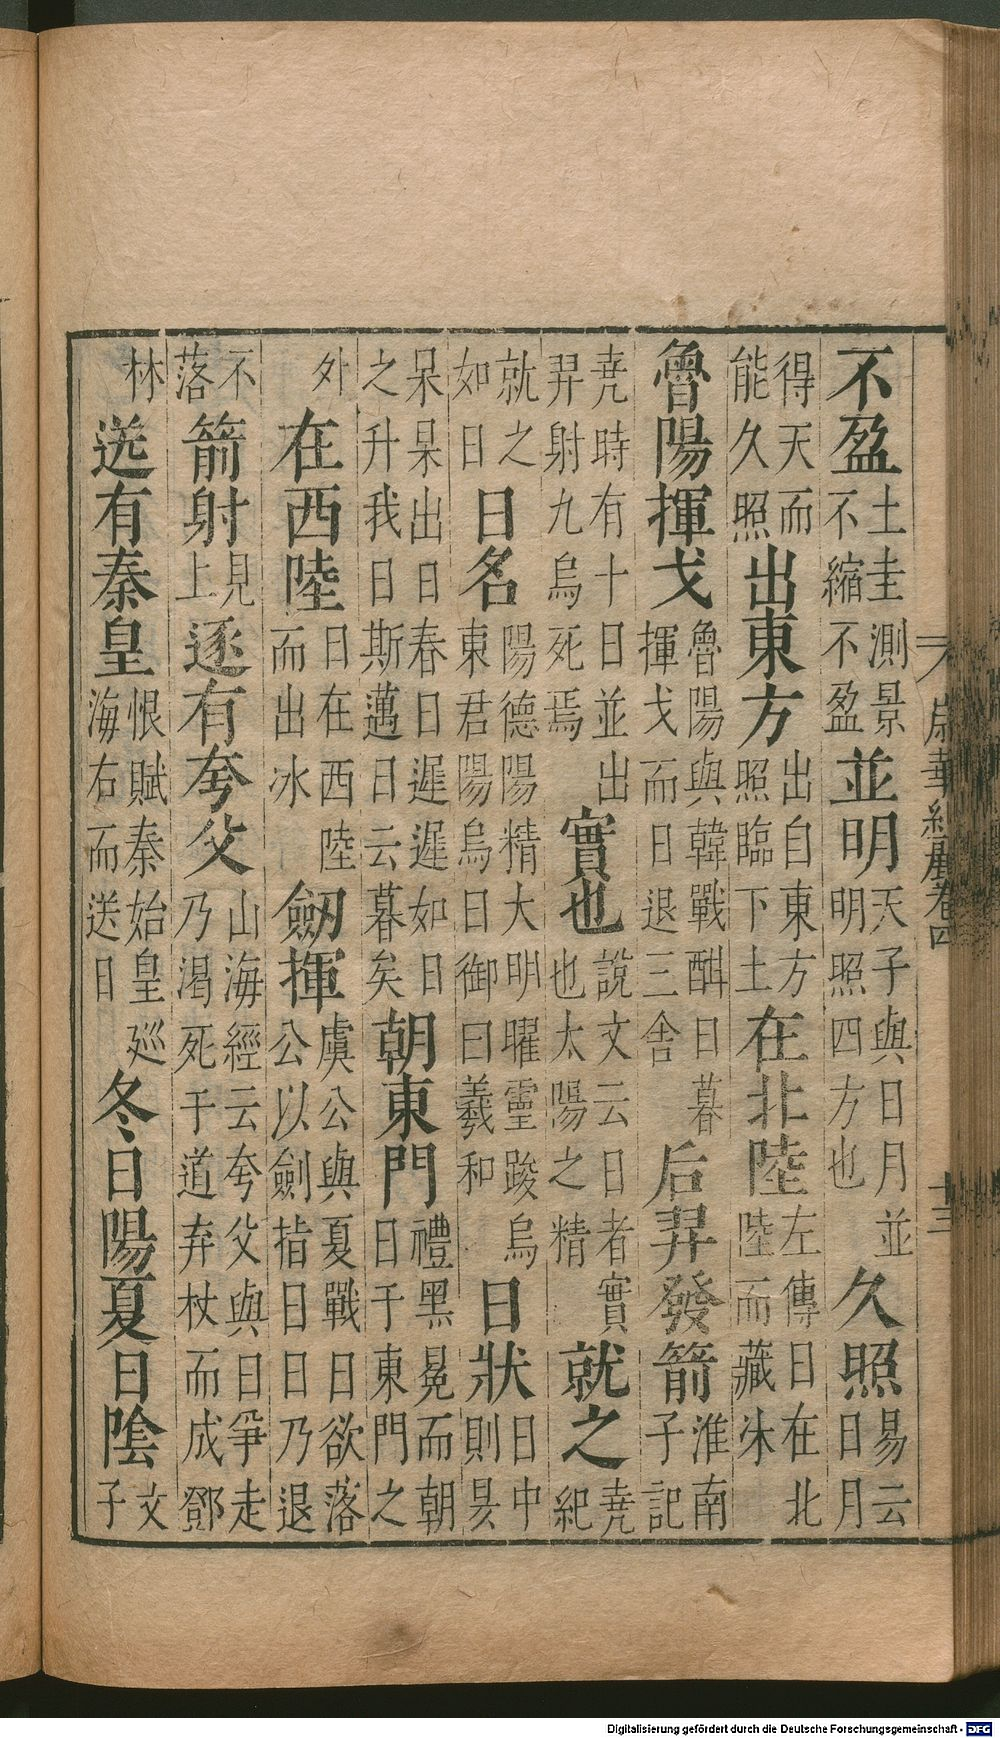 不盈土圭測景不縮不盈並明天子與日月並明明照四方也久照易云日月
得天而能久照出東方出自東方照臨下土在北陸左傳日在北陸而藏氷
魯陽揮戈魯陽與韓戰酣日暮揮戈而日退三舍后羿發箭淮南子記
堯時有十日並出羿射九烏死焉實也說文云日者實也太陽之精就之堯紀
就之如日日名陽德陽精大明曜靈踆烏東君陽烏日御曰羲和日狀日中則昃
杲杲出日春日遲遲如日之升我日斯邁日云暮矣朝東門禮黑冕而朝日于東門之
外在西陸日在西陸而出冰劒揮虞公與夏戰日欲落公以劍指日日乃退
不落箭射見上逐有夸父山海經云夸父與日爭走乃渴死于道弃杖而成鄧
林送有秦皇恨賦秦始皇廵海右而送日冬日陽夏日陰文子
卷四
十三
Digitalisierung gefördert durch die Deutsche Forschungsgemeinschaft - DFG